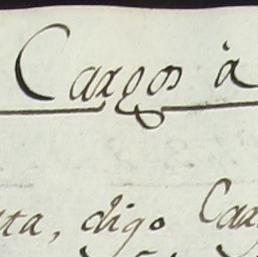 Cargos à
ta, digo Car